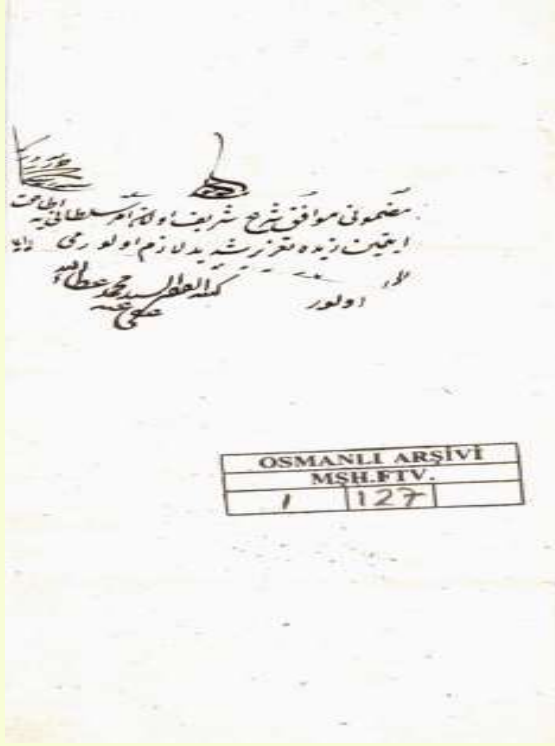 مضمونى موافق شرع شريف اولان امر سلطانى يه اطاعت
ايتمين زيده تعزير شديد لازم اولورمى
اولور
كتبه الفقير السيد محمد عطاء الله
عفى عنه
OSMANLI ARŞİVİ
MŞH.FTV.
1 127